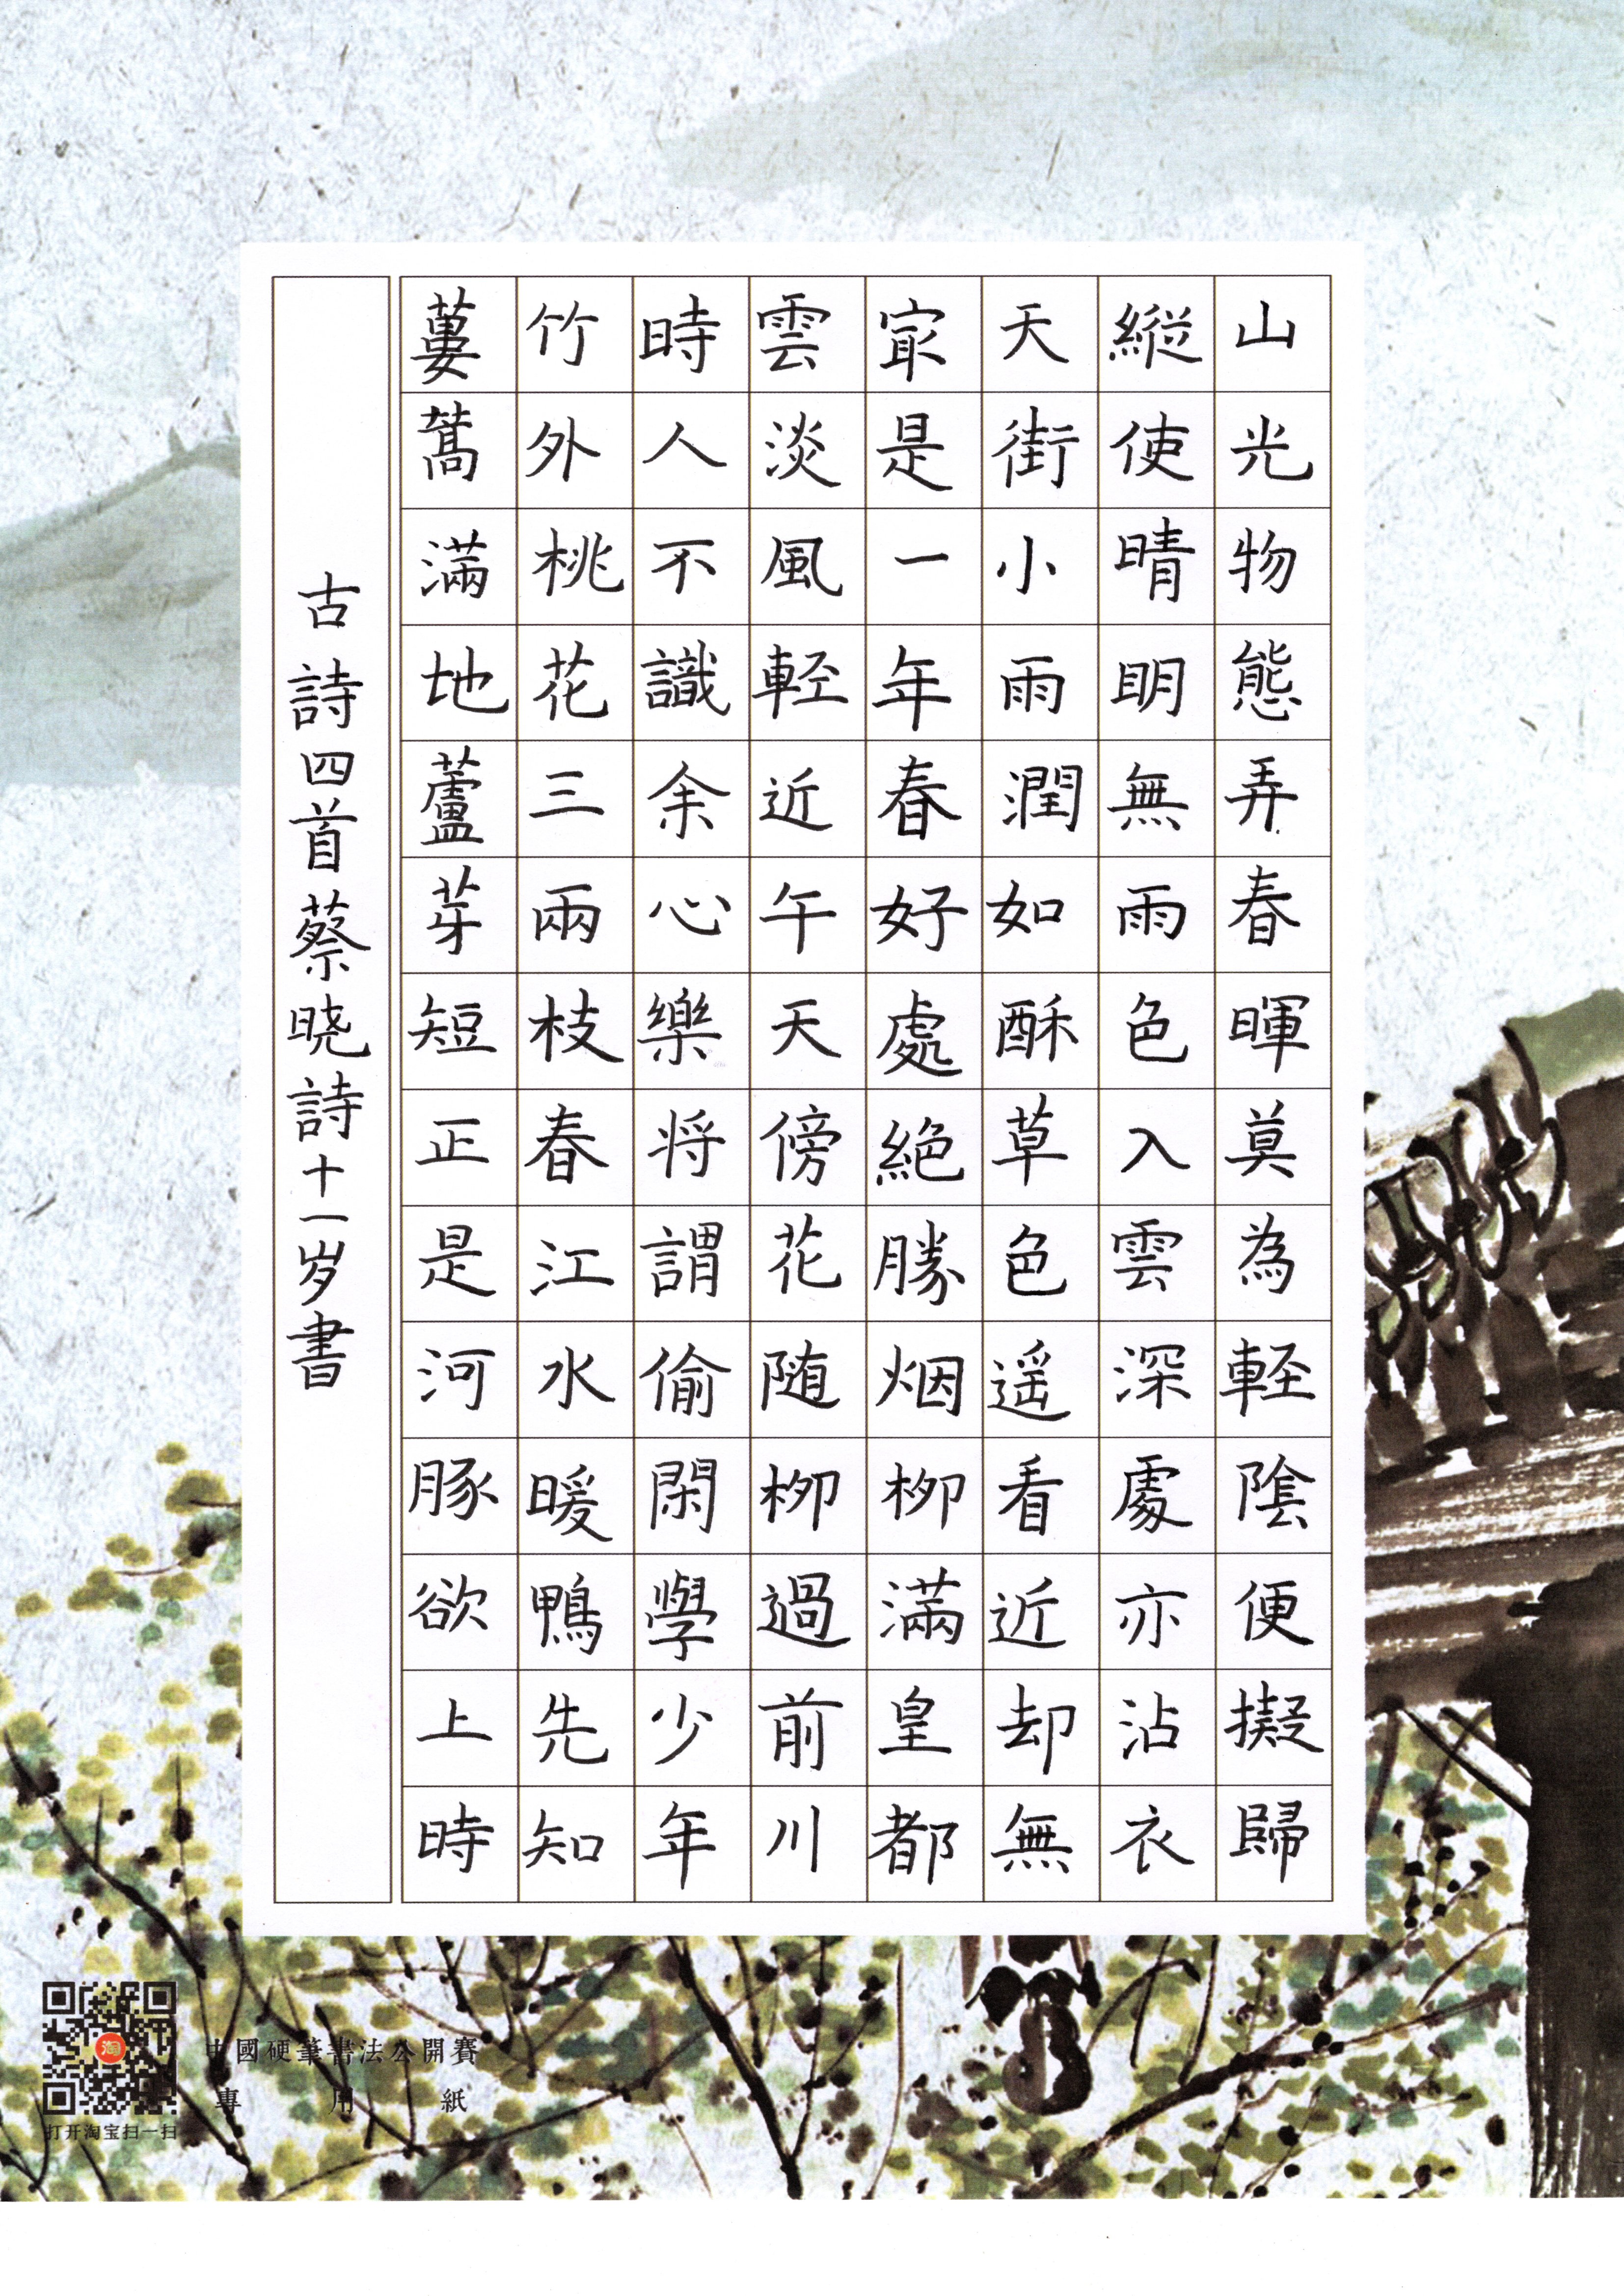 山光物態弄春暉莫為輕陰便擬歸
縱使晴明無雨色入雲深處亦沾衣
天街小雨潤如酥草色遥看近却無
冣是一年春好處絕勝烟柳滿皇都
雲淡風輕近午天傍花随柳過前川
時人不識余心樂将謂偷閑學少年
竹外桃花三兩枝春江水暖鴨先知
蔞蒿滿地蘆芽短正是河豚欲上時
古詩四首蔡晓詩十一岁書
中國硬筆書法公開賽
專用紙
淘
打开淘宝扫一扫